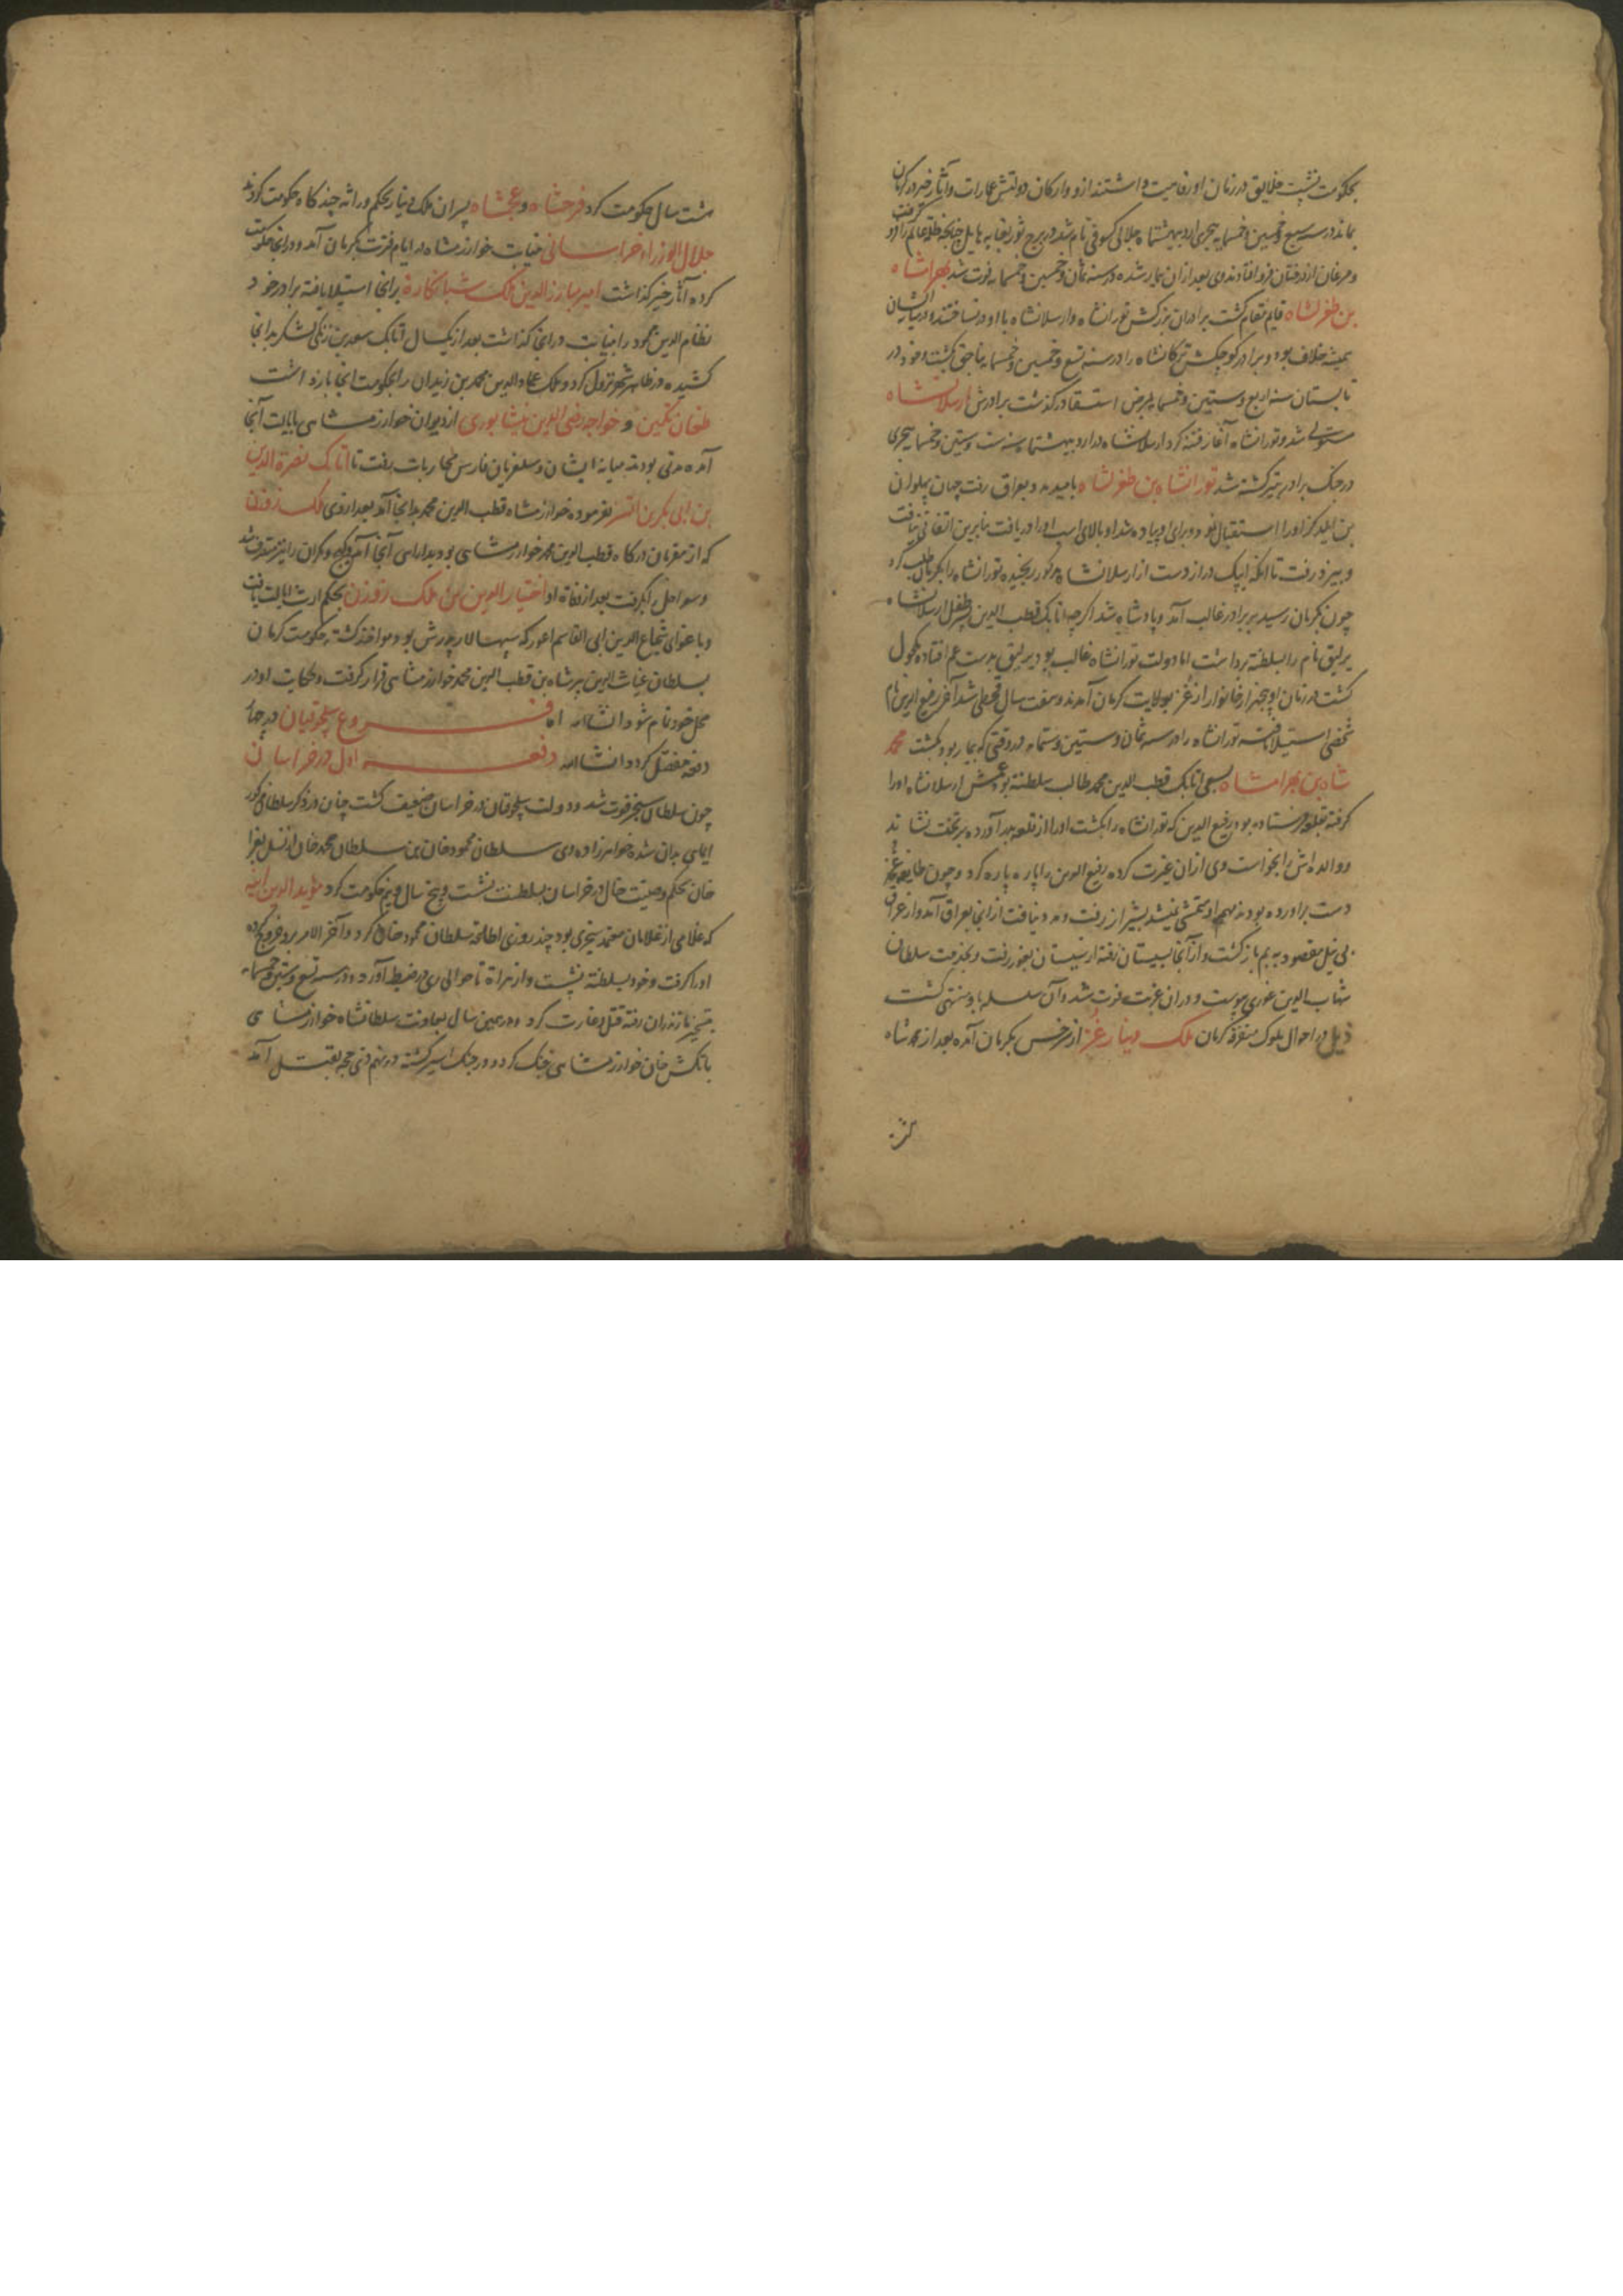 بحکومت نشست خلایق در زمان او رفاهیت داشتند از و و ارکان دولتش عمارات و آثار خیر در کرمان
بماند در سنه سبع و خمسین و خمسمایه هجری اردیبهشت ماه جلالی کسوفی تام شد در برج ثور بغایه هایل چنانچه ظلمت عالم را فرو گرفت
و مرغان از درختان فرو افتادند وی بعد از ان بیمار شده در سنه ثمان و خمسین و خمسمایه فوت شد بهرامشاه
بن طغرلشاه قایم مقام گشت برادران بزرگش تورانشاه و ارسلانشاه با او در نساختند و در میان ایشان
همیشه خلاف بود و برادر کوچکش ترکانشاه را در سنه تسع و خمسین و خمسمایه بناحق بکشت و خود در
تابستان سنه اربع و ستین و خمسمایه بمرض استسقا درگذشت برادرش ارسلانشاه
مستولی شد و تورانشاه آغاز فتنه کرد ارسلانشاه در اردیبهشت ماه سنه ست و ستین و خمسمایه هجری
در جنک برادر بتیر کشته شد تورانشاه بن طغرلشاه بامید مدد بعراق رفت جهان پهلوان
بن ایلدکز او را استقبال نمود و برای او پیاده شد او بالای اسب او را دریافت بنابرین اتفاتی نیافت
و بیزد رفت تا آنکه ایبک دراز دست از ارسلانشاه مذکور رنجیده تورانشاه را بکرمان طلب کرد
چون بکرمان رسید بر برادر غالب آمد و پادشاه شد اگر چه اتابک قطب الدین طفل ارسلانشاه
یرلیق نام را بسلطنة برداشت اما دولت تورانشاه غالب بود یرلیق بدست عم افتاده مکحول
گشت در زمان او پنجهزار خانوار از غز بولایت کرمان آمدند و هفت سال قحطی شد آخر رفیع الدین نام
شخصی استیلا یافته تورانشاه را در سنه ثمان و ستین و ستمایه در وقتی که بیمار بود بکشت محمد
شاه بن بهرامشاه بسعی اتابک قطب الدین محمد طالب سلطنة بود عمش ارسلانشاه او را
گرفته بقلعه فرستاده بود رفیع الدین که تورانشاه را بکشت او را از قلعه بدر آورده بر تخت نشاند
و والده اش را بخواست وی ازان غیرت کرده رفیع الدین را پاره پاره کرد و چون طایفه غز
دست برآورده بودند مهم او بتمشی نمیشد بشیراز رفت و مدد نیافت از انجا بعراق آمد و از عراق
بی نیل مقصود به بم بازگشت و از آنجا بسیستان رفته از سیستان بغور رفت و بخدمت سلطان
شهاب الدین غوری پیوست و دران غربت فوت شد و آن سلسله باو منتهی گشت
ذیل در احوال ملوک متفرقه کرمان ملک دینار غز از سرخس بکرمان آمده بعد از محمد شاه
هشت سال حکومت کرد فرخشاه و عجمشاه پسران ملک دینار بحکم وراثه چند گاه حکومت کردند
جلال الوزراء خراسانی بنیابت خوارزمشاه در ایام فترت بکرمان آمد و در انجا حکومت
کرده آثار خیر گذاشت امیر مبارز الدین ملک شبانکاره برانجا استیلا یافته برادر خود
نظام الدین محمود را بنیابت در انجا گذاشت بعد از یکسال اتابک سعد بن زنکی لشکر بدانجا
کشیده در ظاهر شهر نزول کرد و ملک عماد الدین محمد بن زیدان را بحکومت انجا باز داشت
طغان تکین و خواجه رضی الدین نیشابوری از دیوان خوارزمشاهی بایالت آنجا
آمده مدتی بودند میانه ایشان و سلغریان فارس محاربات رفت تا اتابک نصرة الدین
بن ابی بکر بن اتسز بفرموده خوارزمشاه قطب الدین محمد بدانجا آمد بعد از وی ملک زوزن
که از مقربان درگاه قطب الدین محمد خوارزمشاهی بود بدارایی آنجا آمد و کیج و مکران را نیز متصرف شد
و سواحل بگرفت بعد از وفاة او اختیار الدین بن ملک زوزن بحکم ارث ایالت یافت
و باغوای شجاع الدین ابی القاسم اعور که سپهسالار پدرش بود مواخذ گشته حکومت کرمان
بسلطان غیاث الدین پیرشاه بن قطب الدین محمد خوارزمشاهی قرار گرفت و حکایت او در
محل خود تمام شود انشاءالله اما فروع سلجوقیان در چهار
دفعه مفصل گردد انشاءالله دفعه اول در خراسان
چون سلطان سنجر فوت شد و دولت سلجوقیان در خراسان ضعیف گشت چنان در ذکر سلطان مذکور
ایمای بدان شده خواهرزاده وی سلطان محمود خان بن سلطان محمد خان از نسل بغرا
خان بحکم وصیت خال در خراسان بسلطنت نشست و پنج سال و نیم حکومت کرد مؤید الدین آیبه
که غلامی از غلامان معتمد سنجری بود چند روزی اطاعه سلطان محمود خان کرد و آخر الامر برو خروج کرده
او را گرفت و خود بسلطنة نشست و از هراة تا حوالی ری در ضبط آورد و در سنه تسع و ستین و خمسمایه
بتسخیر مازندران رفته قتل و غارت کرد و در همین سال بمعاونت سلطانشاه خوارزمشاهی
با تکش خان خوارزمشاهی جنک کرد و در جنک اسیر گشته در نهم ذی حجه بقتل آمد